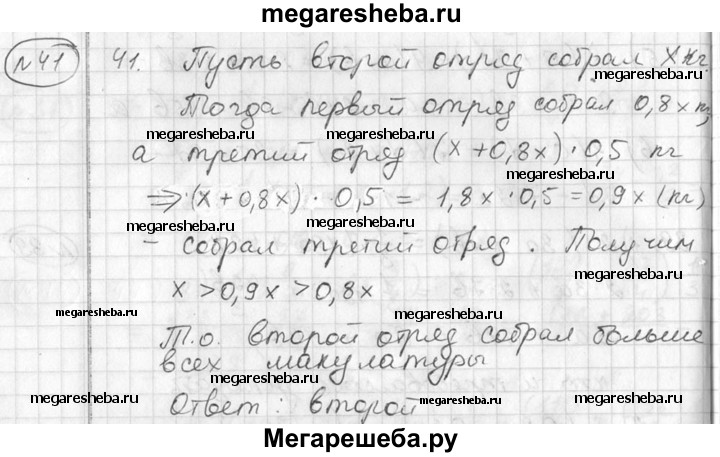 megaresheba.ru
№41 41. Пусть второй отряд собрал x кг
megaresheba.ru megaresheba.ru
Тогда первый отряд собрал 0,8x кг,
megaresheba.ru megaresheba.ru
а третий отряд (x+0,8x)·0,5 кг
⇒(x+0,8x)·0,5 = 1,8x·0,5=0,9x (кг)
megaresheba.ru megaresheba.ru
– собрал третий отряд. Получим
megaresheba.ru
x>0,9x>0,8x
megaresheba.ru
Т.о. второй отряд собрал больше
всех макулатуры
megaresheba.ru
megaresheba.ru megaresheba.ru megaresheba.ru
Ответ: второй
Мегарешеба.ру